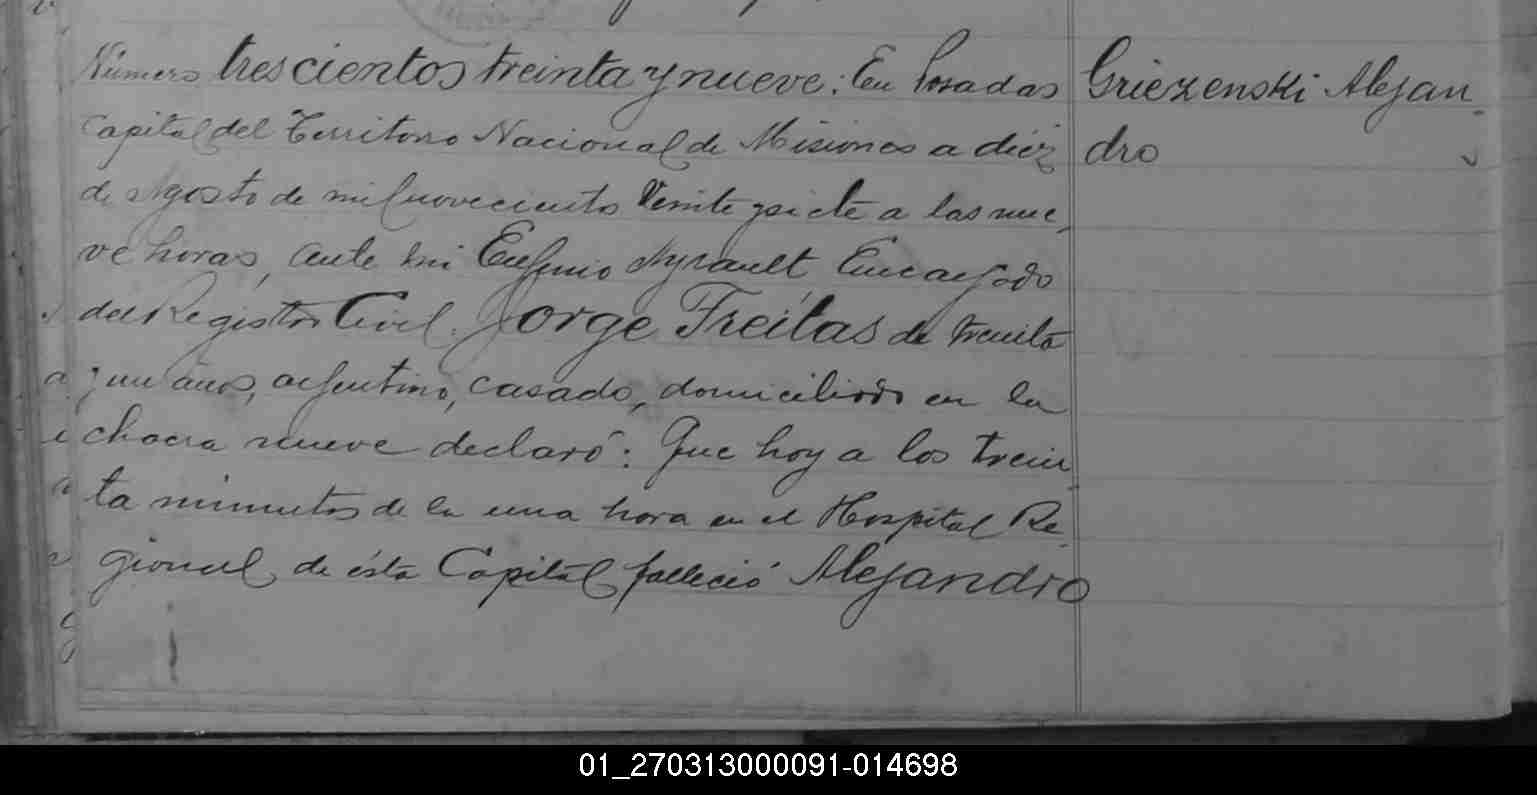 Número trescientos treinta y nueve: En Posadas
Capital del Territorio Nacional de Misiones a diéz
de Agosto de mil novecientos Veinte y siete a las nue
ve horas, ante mi Eugenio Ayrault Encargado
del Registro Civil. Jorge Freitas de treinta
y un años, argentino, casado, domiciliado en la
chacra nueve declaró: Que hoy a los trein
ta minutos de la una hora en el Hospital Re
gional de ésta Capital falleció Alejandro
Griezenski Alejan
dro
01_270313000091-014698